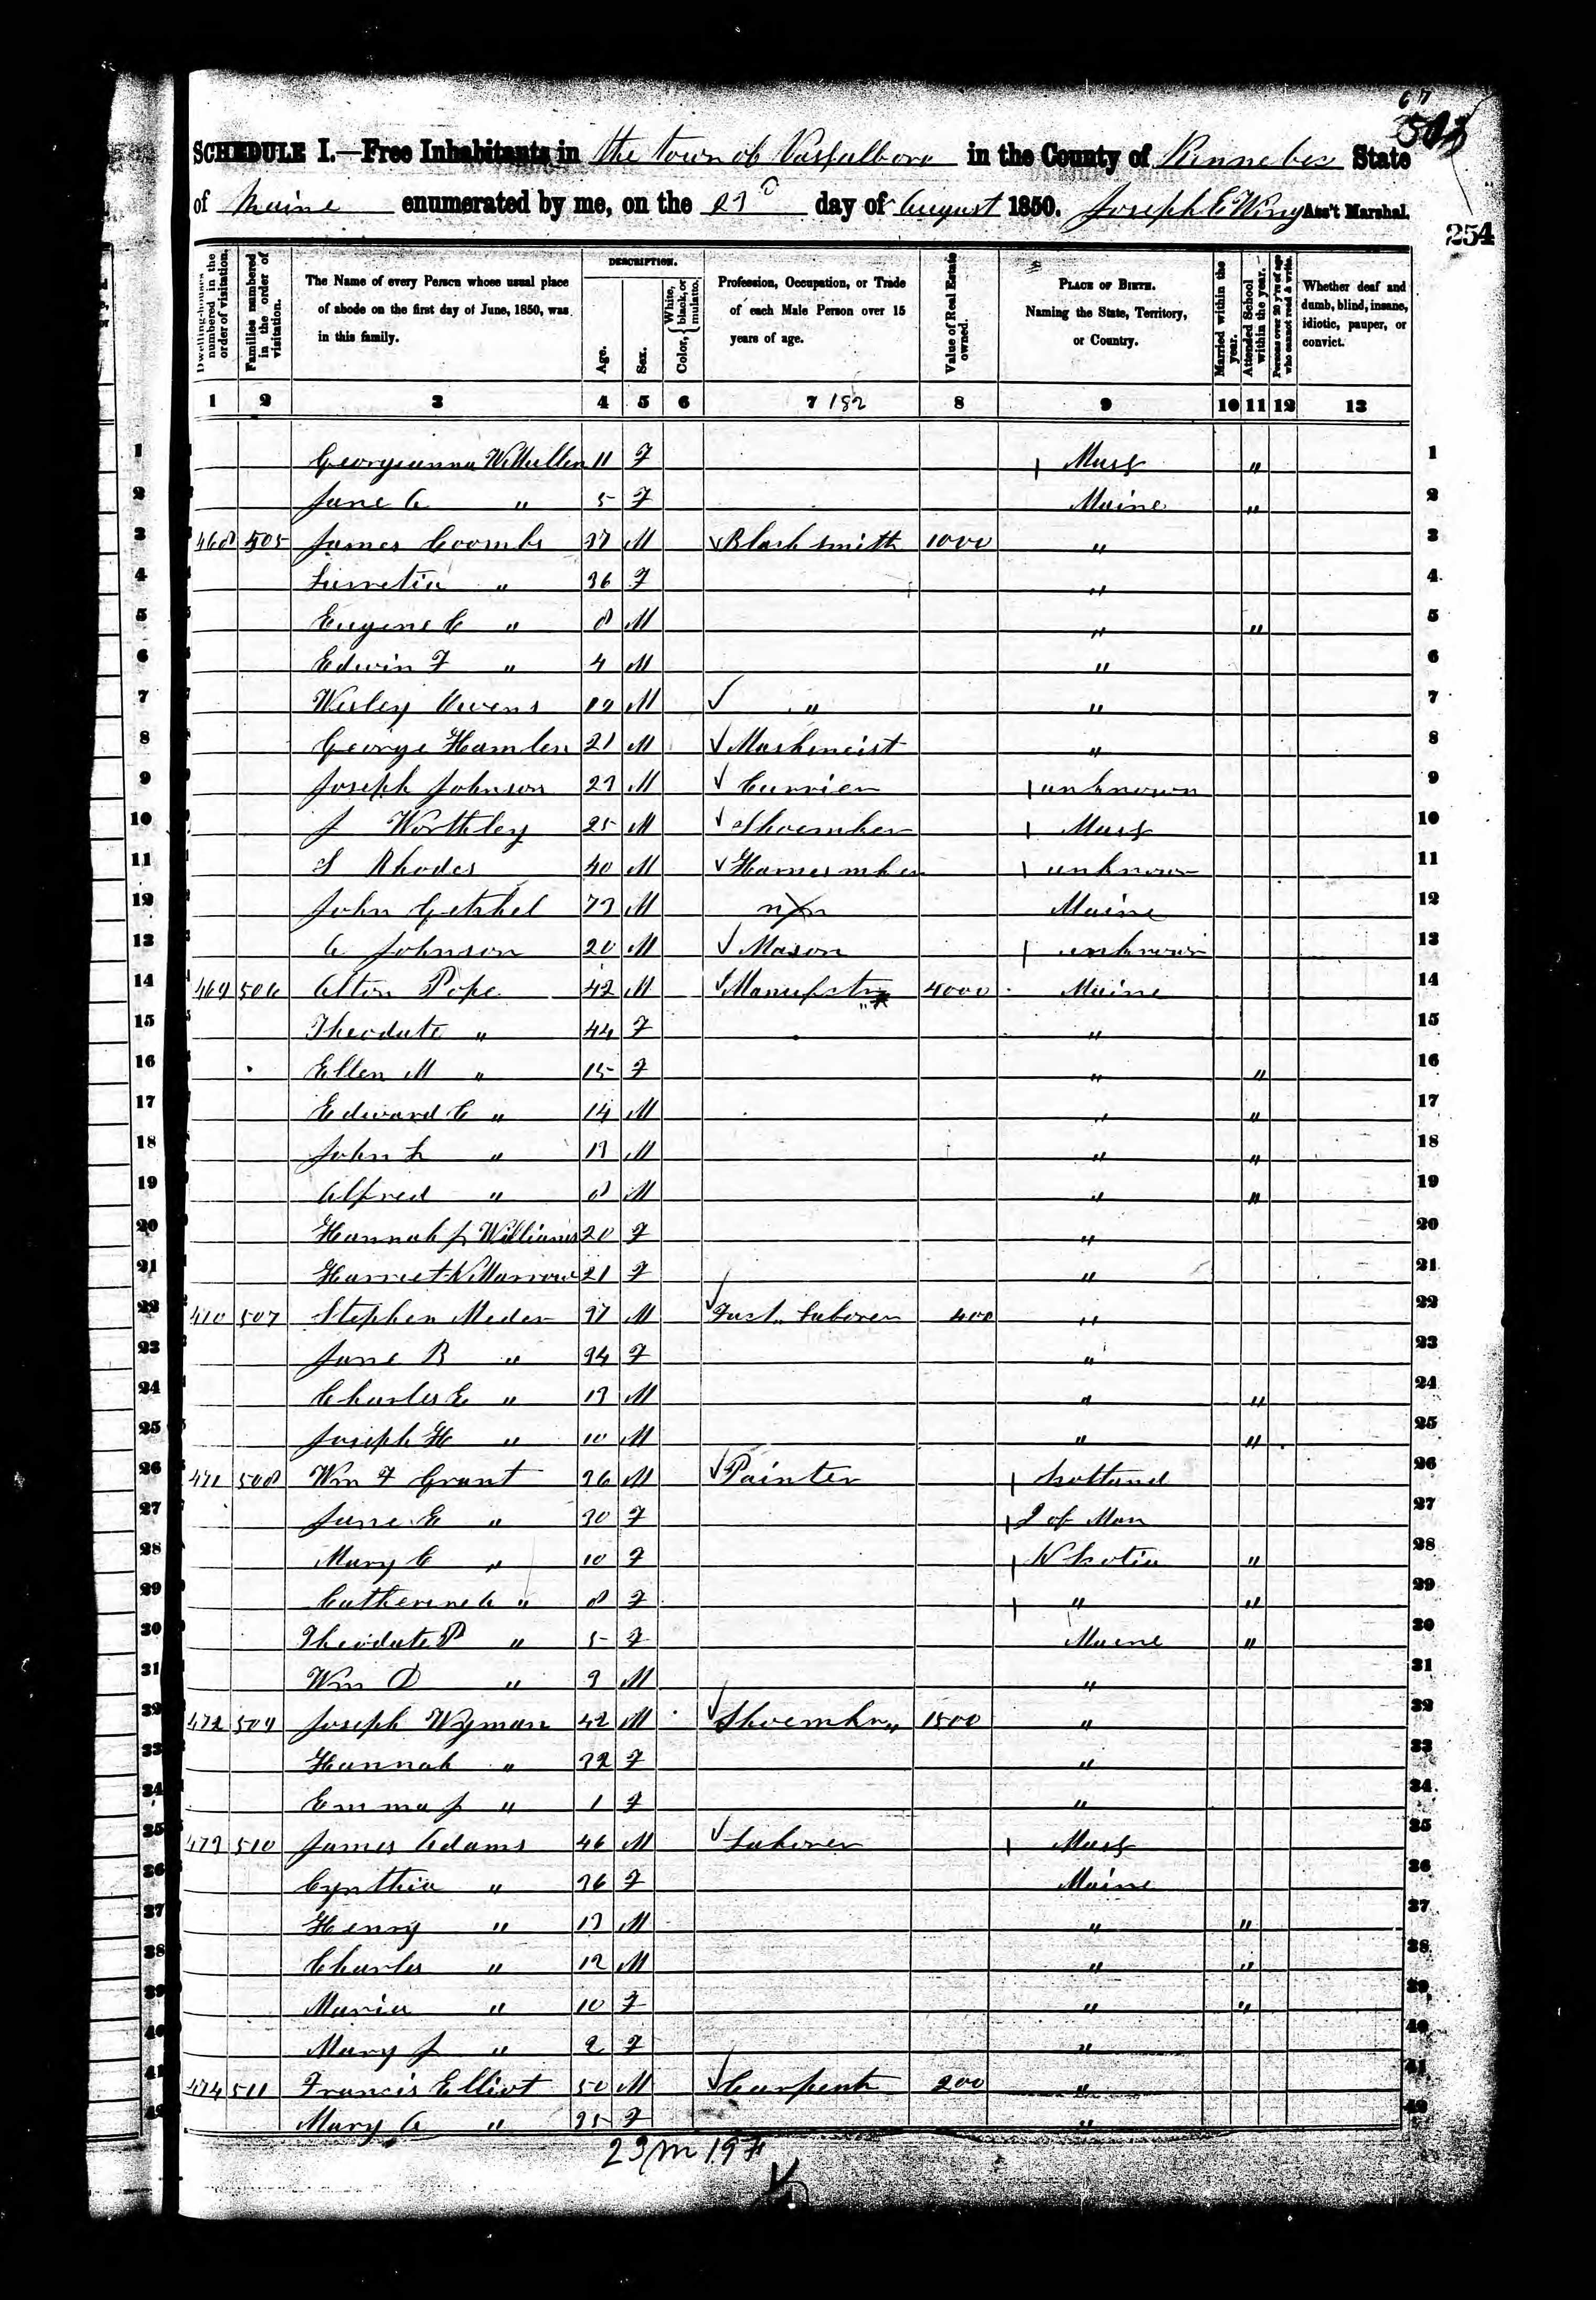 67
SCHEDULE I.—Free Inhabitants in the town of Vassalboro in the County of Kennebec State
of Maine enumerated by me, on the 23d day of August 1850. Joseph E Wing Ass't Marshal.
254
Dwelling-houses numbered in the order of visitation.
Families numbered in the order of visitation.
The Name of every Person whose usual place of abode on the first day of June, 1850, was in this family.
DESCRIPTION.
Age.
Sex.
Color, White, black, or mulatto.
Profession, Occupation, or Trade of each Male Person over 15 years of age.
Value of Real Estate owned.
PLACE OF BIRTH. Naming the State, Territory, or Country.
Married within the year.
Attended School within the year.
Persons over 20 y'rs of age who cannot read & write.
Whether deaf and dumb, blind, insane, idiotic, pauper, or convict.
1 2 3 4 5 6 7 182 8 9 10 11 12 13
1 Georgeanna 11 F Mass " 1
2 Jane A " 5 F Maine " 2
3 468 505 James Coombs 37 M Blacksmith 1000 " 3
4 Lucretia " 36 F " 4
5 Eugene C " 8 M " " 5
6 Edwin F " 4 M " 6
7 Wesley Owens 19 M " " 7
8 George Hamlen 21 M Mashineist " 8
9 Joseph Johnson 23 M Currier unknown 9
10 J Worthley 25 M Shoemker Mass 10
11 S Rhodes 40 M Harnesmker unknown 11
12 John Getchel 73 M Maine 12
13 A Johnson 20 M Mason unknown 13
14 469 506 Alton Pope 42 M Manufstr 4000 Maine 14
15 Theodate " 44 F " 15
16 Ellen M " 15 F " " 16
17 Edward C " 14 M " " 17
18 John L " 13 M " " 18
19 Alfred " 8 M " " 19
20 Hannah J Williams 20 F " 20
21 Harriet N Marrow 21 F " 21
22 470 507 Stephen Meder 37 M Fact. Laborer 400 " 22
23 Jane B " 34 F " 23
24 Charles E " 13 M " " 24
25 Joseph H " 10 M " " 25
26 471 508 Wm F Grant 36 M Painter Scotland 26
27 Jane E " 30 F I of Man 27
28 Mary C " 10 F N Scotia " 28
29 Catherine A " 8 F " " 29
30 Theodate P " 5 F Maine " 30
31 Wm D " 3 M " 31
32 472 509 Joseph Wyman 42 M Shoemkr " 1500 " 32
33 Hannah " 32 F " 33
34 Emma J " 1 F " 34
35 473 510 James Adams 46 M Laborer Mass 35
36 Cynthia " 36 F Maine 36
37 Henry " 13 M " " 37
38 Charles " 12 M " " 38
39 Maria " 10 F " " 39
40 Mary J " 2 F " 40
41 474 511 Francis Elliot 50 M Carpentr 200 " 41
42 Mary A " 35 F " 42
23 m 19 F